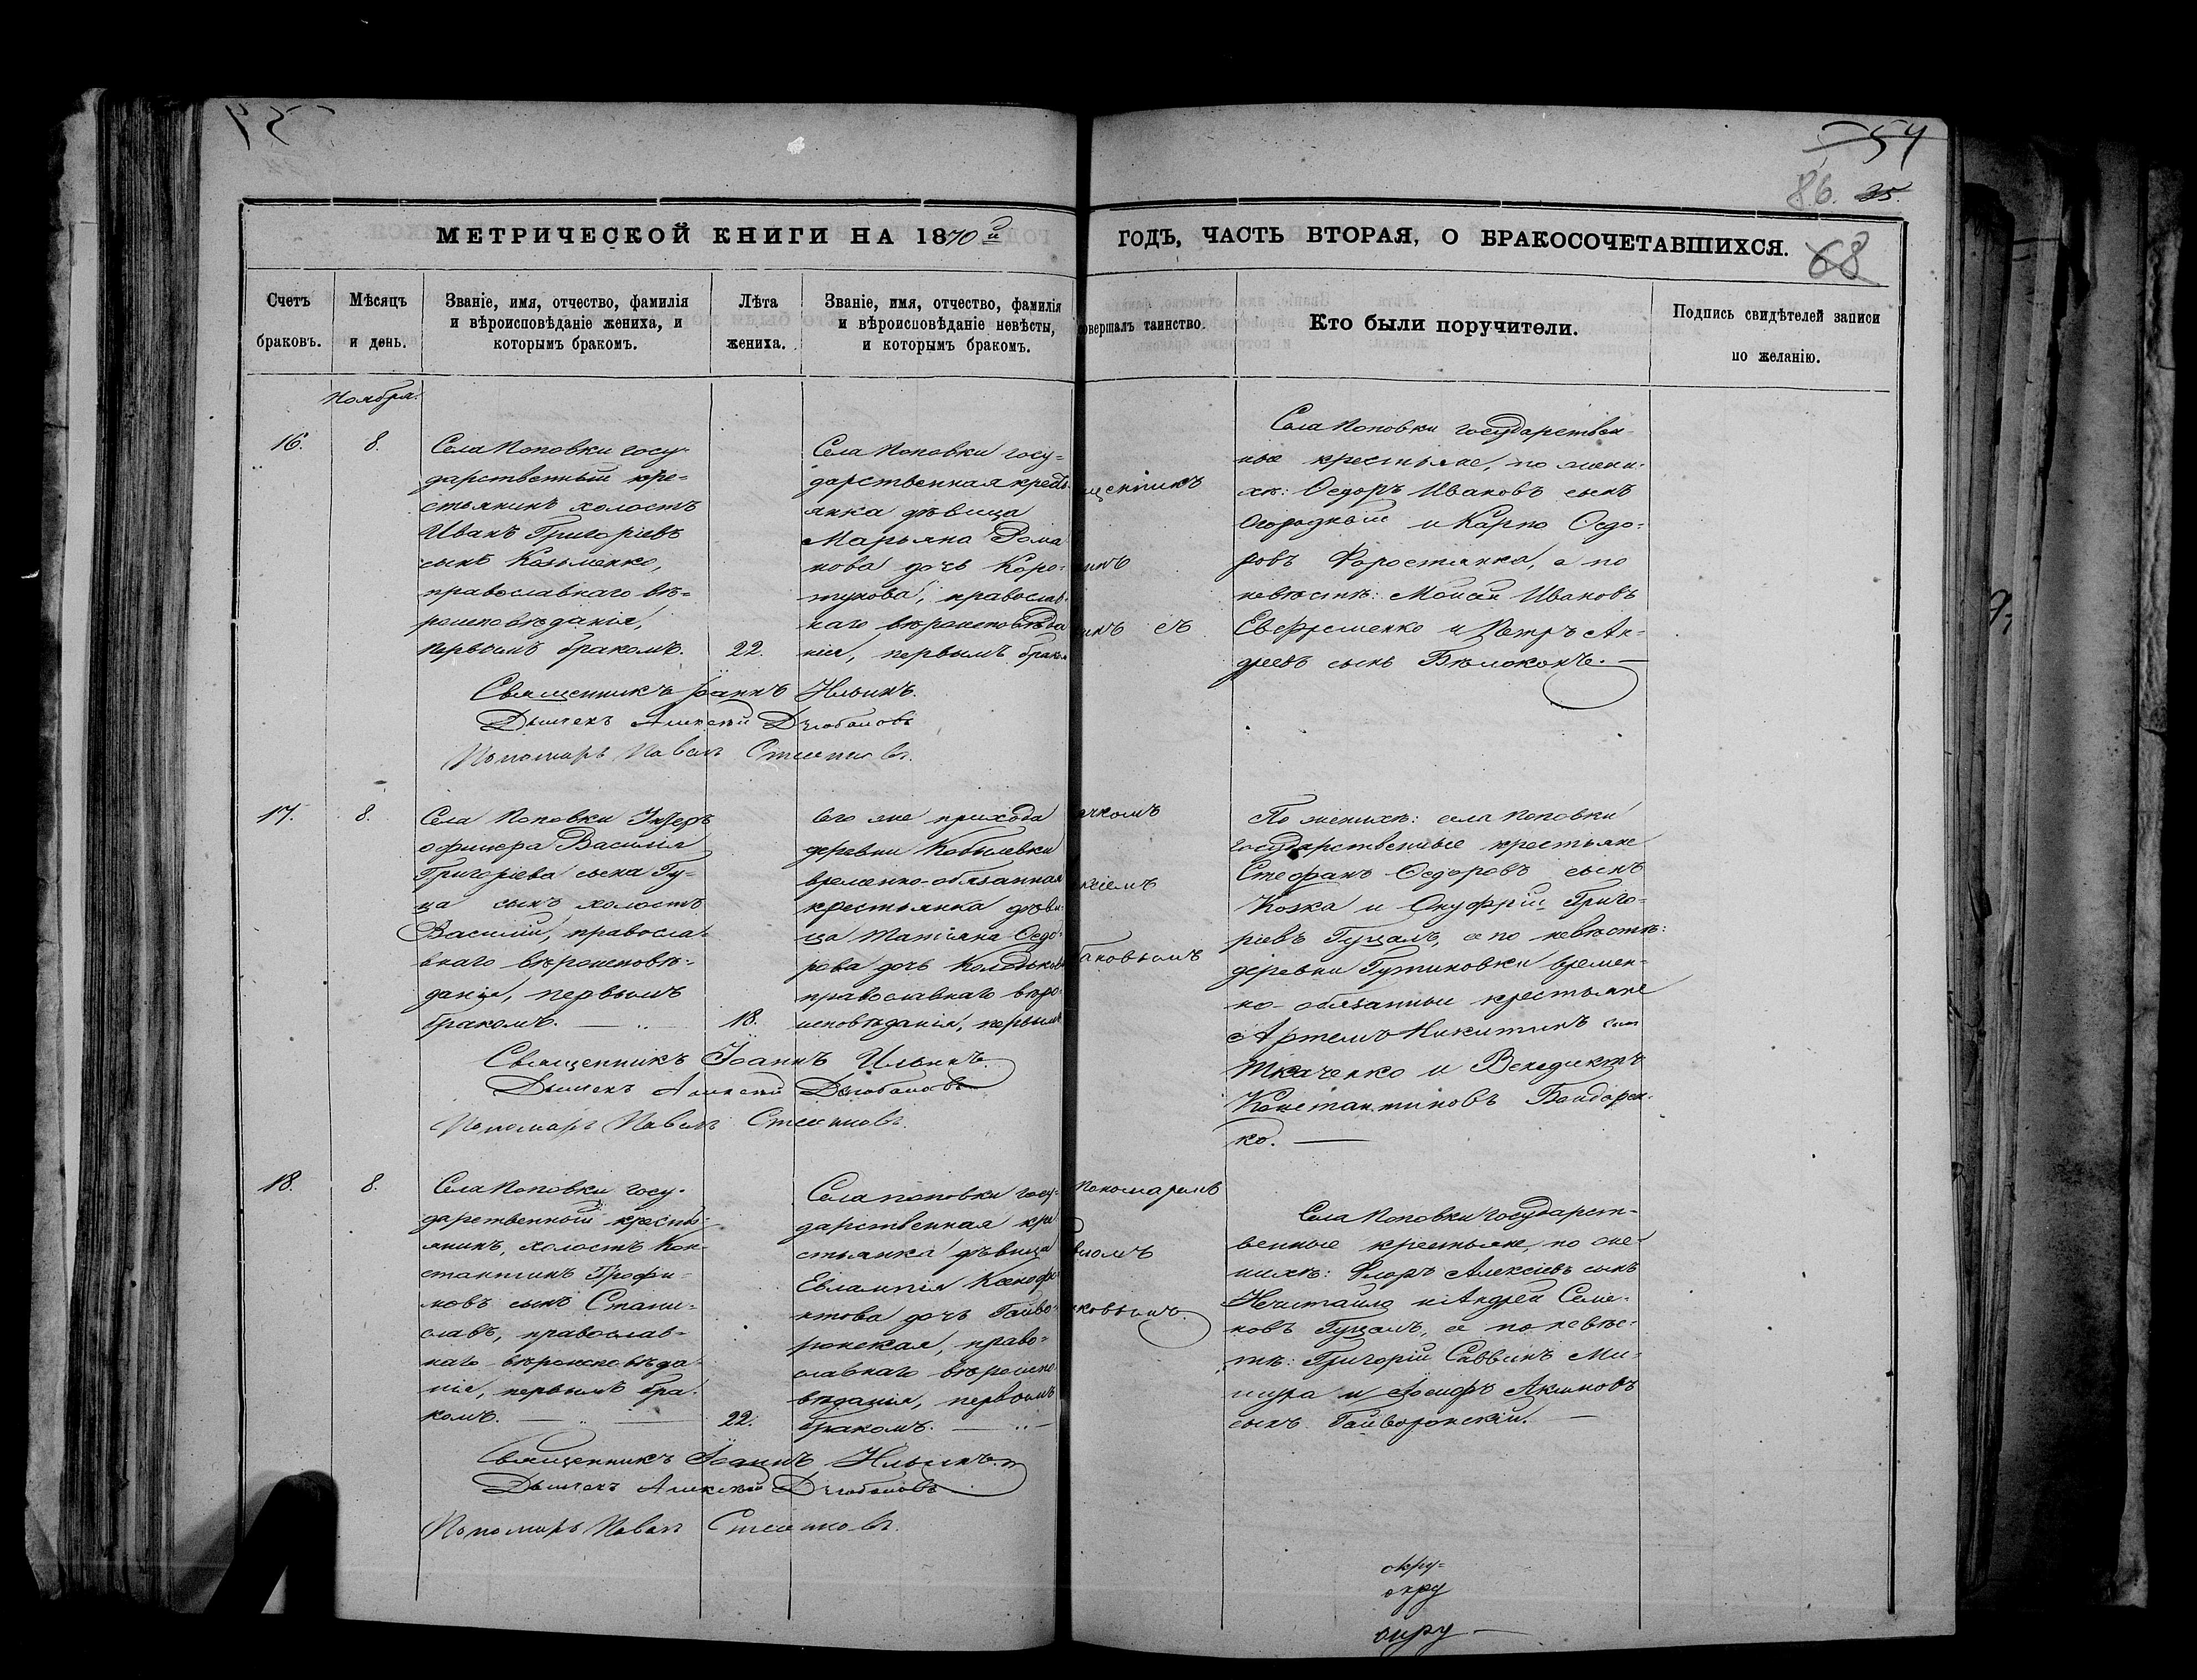 54
54
86. 35.
МЕТРИЧЕСКОЙ КНИГИ НА 1870й
ГОДЪ, ЧАСТЬ ВТОРАЯ, О БРАКОСОЧЕТАВШИХСЯ.
68
Счетъ
браковъ.
Мѣсяцъ
и день.
Званіе, имя, отчество, фамилія
и вѣроисповѣданіе жениха, и
которымъ бракомъ.
Лѣта
жениха.
Званіе, имя, отчество, фамилія
и вѣроисповѣданіе невѣсты,
и которымъ бракомъ.
овершалъ таинство.
Кто были поручители.
Подпись свидѣтелей записи
по желанію.
Ноября.
16.
8.
Села Поповки госу-
дарственный кре-
стьянинъ холостъ
Иванъ Григоріевъ
сынъ Козьменко,
православнаго вѣ-
роисповѣданія,
первымъ бракомъ.
22.
Села Поповки госу-
дарственная кресть-
янка дѣвица
Марьяна Рома
нова дочь Коро-
тунова, православ-
наго вѣроисповѣда
нія, первымъ браком
щенникъ
инъ
инъ съ
Села Поповки государствен-
ные крестьяне, по жени-
хѣ: Ѳедоръ Ивановъ сынъ
Огородный и Карпо Ѳедо-
ровъ Форостянка, а по
невѣстѣ: Моисей Ивановъ
Евфременко и Петръ Ан-
дреевъ сынъ Бѣлоконь.
Священникъ Іоаннъ Ильинъ.
Дьячекъ Алексѣй Дзюбановъ
Пономарь Павелъ
17.
8.
Села Поповки Унтеръ
офицера Василія
Григоріева сына Гу-
ца сынъ холостъ
Василій, правосла-
внаго вѣроисповѣ-
данія, первымъ
бракомъ.
18.
Сего же прихода
деревни Кобылевки
временно-обязанная
крестьянка дѣви-
ца Татіана Ѳедо-
рова дочь
православнаго вѣро-
исповѣданія, первымъ
ячкомъ
ксіемъ
бановымъ
По женихѣ: села Поповки
государственные крестьяне
Стефанъ Ѳедоровъ сынъ
Козка и Онуфрій Григо-
ріевъ Гуцалъ, а по невѣстѣ:
деревни Гутиновки времен-
но-обязанные крестьяне
Артемъ Никитинъ сынъ
Ткаченко и Венедиктъ
Константиновъ Бондарен-
ко.
Священникъ Іоаннъ Ильинъ.
Дьячекъ Алексѣй Дзюбановъ
Пономарь Павелъ
18.
8.
Села Поповки госу-
дарственный кресть-
янинъ, холостъ Кон-
стантинъ Трофи-
мовъ сынъ Стани-
славъ, православ-
наго вѣроисповѣда
нія, первымъ бра-
комъ.
22.
Села Поповки госу-
дарственная кре
стьянка дѣвица
Евлампія Ксенофо
нтова дочь Гайво-
ронская, право-
славнаго вѣроиспо
вѣданія, первымъ
бракомъ.
Пономаремъ
вломъ
новымъ.
Села Поповки государст-
венные крестьяне, по же-
нихѣ: Флоръ Алексіевъ сынъ
Нечитайло и Андрей Семе-
новъ Гуцалъ, а по невѣс-
тѣ: Григорій Саввинъ Ми-
щура и Іосифъ Акимовъ
сынъ Гайворонскій.
Священникъ Іоаннъ Ильинъ.
Дьячекъ Алексѣй Дзюбановъ
Пономарь Павелъ
окру-
окру
окру